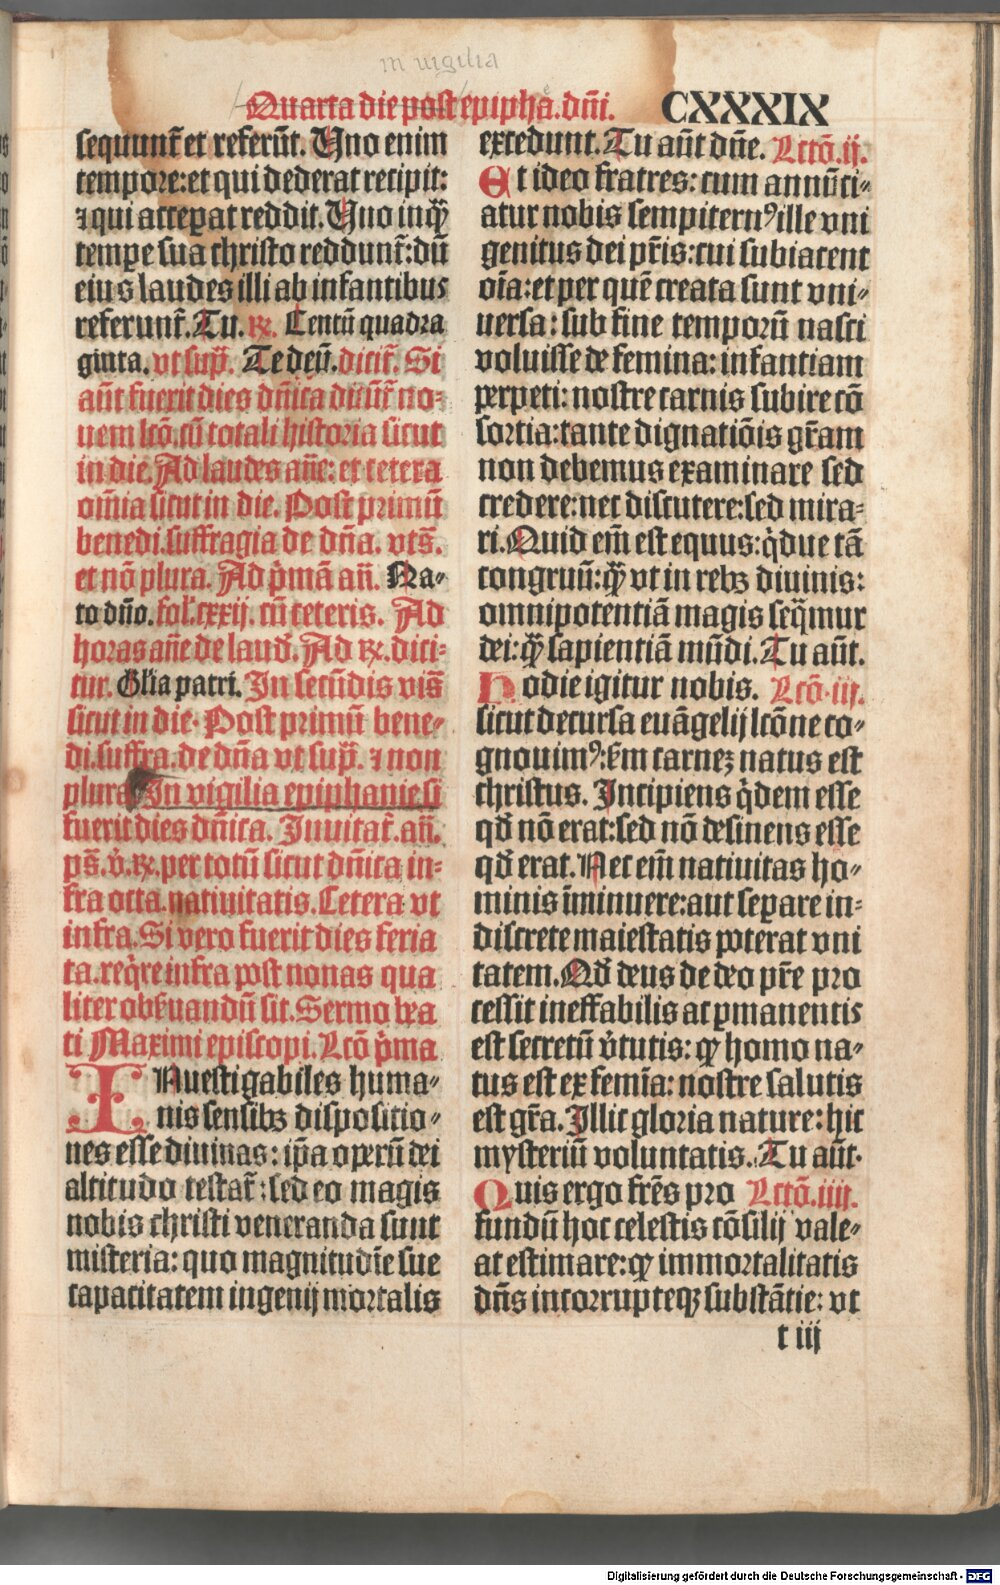 in uigilia
Quarta die post epipha.dñi. CXXXIX
sequunt̃ et referũt. Uno enim
tempore:et qui dederat recipit:
⁊ qui acceꝑat reddit. Uno inqꝫ̃
temꝑe sua christo reddunt̃:dũ
eius laudes illi ab infantibus
referunt̃. Tu. ꝶ. Centũ quadra
ginta. vt sup̃. Te deũ. dicit̃. Si
aũt fuerit dies dñica dicũt̃ no⸗
uem lcõ. cũ totali historia sicut
in die. Ad laudes añe: et cetera
om̃ia sicut in die. Post primũ
benedi.suffragia de dña. vts̃.
et nõ plura. Ad p̃mã añ. Na⸗
to dño. fol.cxxij. cũ ceteris. Ad
horas añe de laud̃. Ad ꝶ. dici⸗
tur. Glia patri. In secũdis vis̃
sicut in die. Post primũ bene⸗
di.suffra.de dña vt sup̃. ⁊ non
plura. In vigilia epiphanie si
fuerit dies dñica. Inuitat̃. añ.
ps̃. v̓. ꝶ. per totũ sicut dñica in⸗
fra octa.natiuitatis. Cetera vt
infra. Si vero fuerit dies feria
ta.req̃re infra post nonas qua
liter obẜuandũ sit. Sermo bea
ti Maximi episcopi. Lcõ p̃ma
INuestigabiles huma⸗
nis sensibꝫ dispositio⸗
nes esse diuinas: ip̃a operũ dei
altitudo testat̃: sed eo magis
nobis christi veneranda sunt
misteria: quo magnitudĩe sue
capacitatem ingenij mortalis
excedunt. Tu aũt dñe. Lctõ.ij.
Et ideo fratres: cum annũci⸗
atur nobis sempiternꝰ ille vni
genitus dei pr̃is: cui subiacent
oĩa: et per quẽ creata sunt vni⸗
uersa: sub fine temporũ nasci
voluisse de femina: infantiam
perpeti: nostre carnis subire cõ
sortia: tante dignatiõis gr̃am
non debemus examinare sed
credere: nec discutere: sed mira⸗
ri. Quid em̃ est equus: q̃d̓ue tã
congruũ: qꝫ̃ vt in rebꝫ diuinis:
omnipotentiã magis seq̃mur
dei: qꝫ̃ sapientiã mũdi. Tu aũt.
Hodie igitur nobis. Lctõ.iij.
sicut decursa euãgelij lcõne co⸗
gnouimꝰ: ẜm carneꝫ natus est
christus. Incipiens q̃dem esse
qd̓ nõ erat: sed nõ desinens esse
qd̓ erat. Nec em̃ natiuitas ho⸗
minis ĩminuere: aut seꝑare in⸗
discrete maiestatis poterat vni
tatem. Qd̓ deus de deo pr̃e pro
cessit ineffabilis ac ꝑmanentis
est secretũ v̓tutis: qꝫ homo na⸗
tus est ex femĩa: nostre salutis
est gr̃a. Illic gloria nature: hic
mysteriũ voluntatis. Tu aũt.
Quis ergo fr̃es pro Lctõ.iiij.
fundũ hoc celestis cõsilij vale⸗
at estimare: qꝫ immortalitatis
dñs incorrupteqꝫ substãtie: vt
t iij
Digitalisierung gefördert durch die Deutsche Forschungsgemeinschaft - DFG